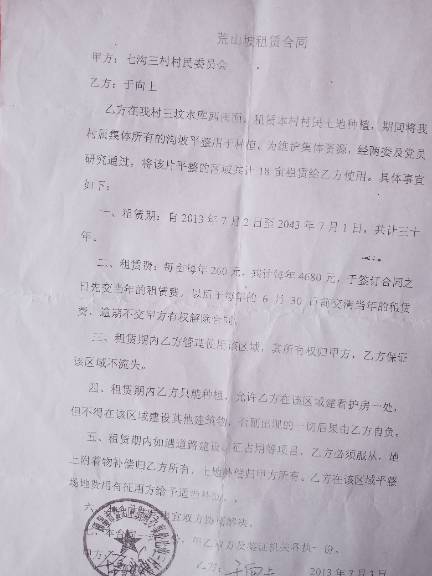 荒山坡租赁合同
甲方：七沟三村村民委员会
乙方：于向上
乙方在我村三坟水库西夹面，租赁本村村民土地种植，期间将我
村属集体所有的沟坡平整用于种植，为维护集体资源，经两委及党员
研究通过，将该片平整的区域共计18亩租赁给乙方使用。具体事宜
如下：
一、租赁期：自2013年7月2日至2043年7月1日，共计三十
年。
二、租赁费：每亩每年260元，共计每年4680元，于签订合同之
日先交当年的租赁费，以后于每年的6月30日前交清当年的租赁
费，逾期不交甲方有权解除合同。
三、租赁期内乙方管理使用该区域，其所有权归甲方，乙方保证
该区域不流失。
四、租赁期内乙方只能种植，允许乙方在该区域建看护房一处，
但不得在该区域建设其他建筑物，否则出现的一切后果由乙方自负。
五、租赁期内如遇道路建设、征占用等项目，乙方必须服从，地
上附着物补偿归乙方所有，土地补偿归甲方所有。乙方在该区域平整
场地费用有征用方给予适当补偿。
六、 宜双方协商解决。
七、本合同 甲乙双方及鉴证机关各执一份。
甲方 乙方：于向上 2013年7月1日